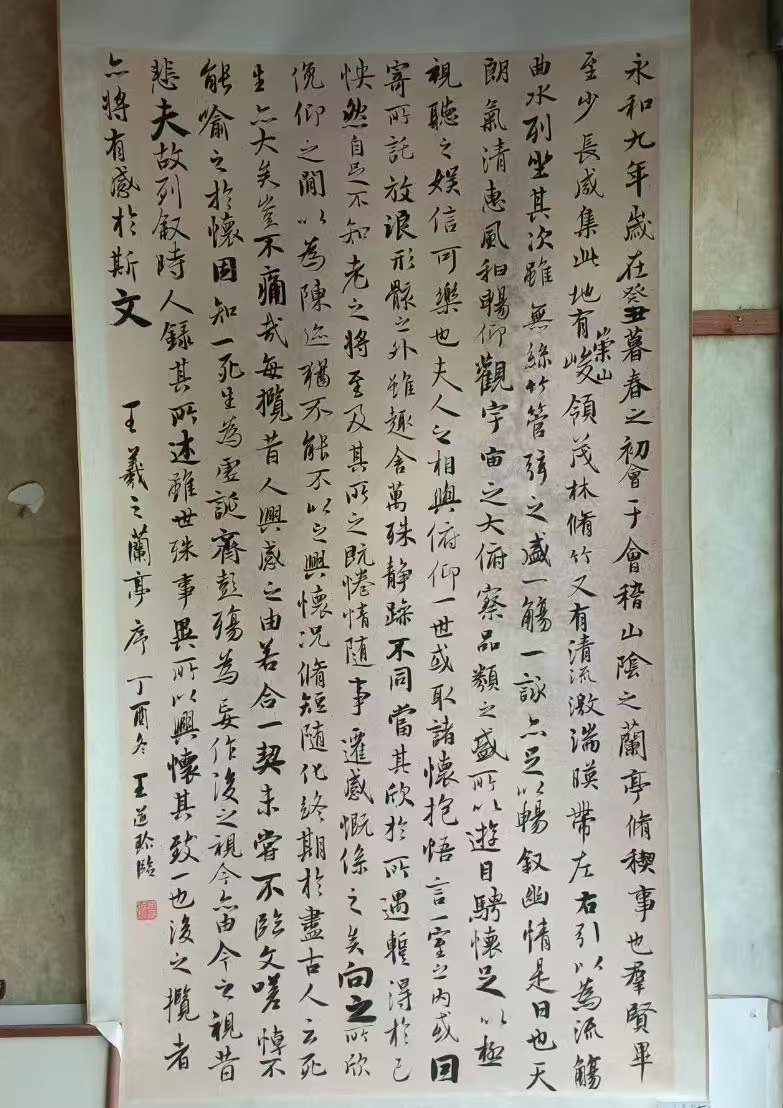 永和九年歲在癸丑暮春之初會于會稽山陰之蘭亭脩稧事也羣賢畢
至少長咸集此地有崇山峻領茂林脩竹又有清流激湍暎帶左右引以為流觴
曲水列坐其次雖無絲竹管弦之盛一觴一詠亦足以暢叙幽情是日也天
朗氣清惠風和暢仰觀宇宙之大俯察品類之盛所以遊目騁懷足以極
視聽之娛信可樂也夫人之相與俯仰一世或取諸懷抱悟言一室之內或因
寄所託放浪形骸之外雖趣舍萬殊静躁不同當其欣於所遇蹔得於己
怏然自足不知老之將至及其所之既惓情随事遷感慨係之矣向之所欣
俛仰之間以為陳迹猶不能不以之興懷況脩短随化終期於盡古人云死
生亦大矣豈不痛哉每攬昔人興感之由若合一契未嘗不臨文嗟悼不
能喻之於懷固知一死生為虛誕齊彭殤為妄作後之視今亦由今之視昔
悲夫故列叙時人録其所述雖世殊事異所以興懷其致一也後之攬者
亦將有感於斯文 王羲之蘭亭序 丁酉冬 王道 臨